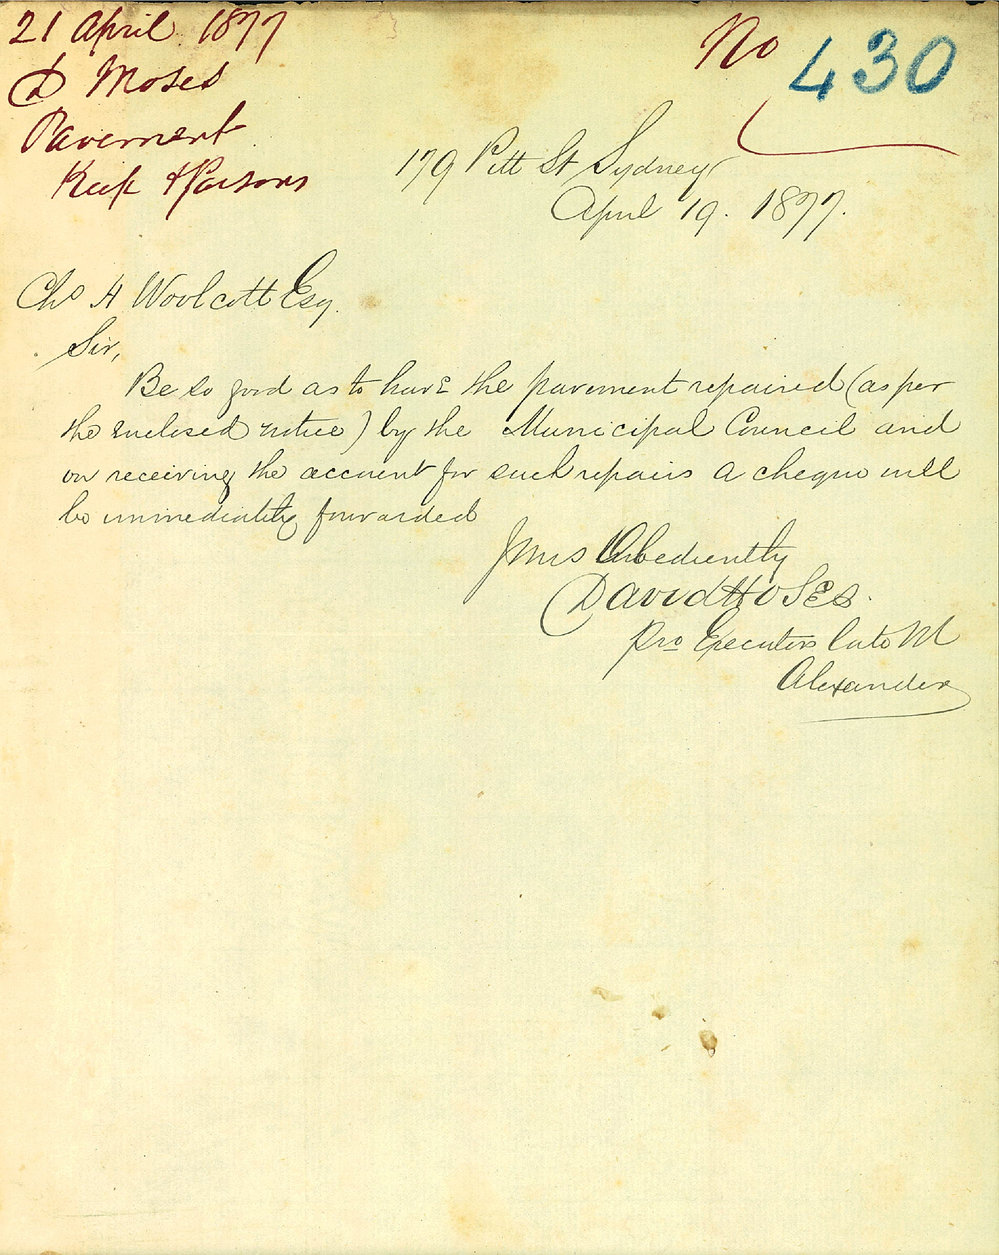 21 April 1877
D Moses
Pavement
No 430
179 Pitt St Sydney
April 19. 1877.
Chs H Woolcott Esq.
Sir,
Be so good as to have the pavement repaired (as per
the enclosed notice) by the Municipal Council and
on receiving the account for such repairs a cheque will
be immediately forwarded
Yours Obediently
David Moses.
Pro Executors late M
Alexander